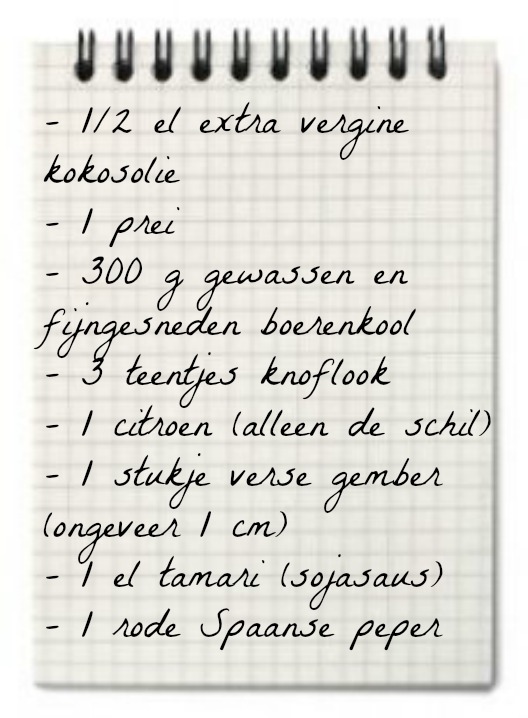 - 1/2 el extra vergine
kokosolie
- 1 prei
- 300 g gewassen en
fijngesneden boerenkool
- 3 teentjes knoflook
- 1 citroen (alleen de schil)
- 1 stukje verse gember
(ongeveer 1 cm)
- 1 el tamari (sojasaus)
- 1 rode Spaanse peper